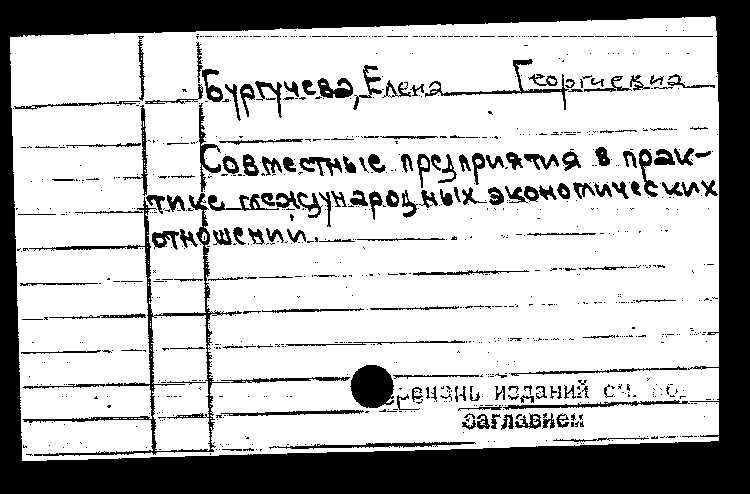 Бургучева, Елена Георгиевна
Совместные предприятия в прак-
тике международных экономических
отношений.
изданий см. под
заглавием